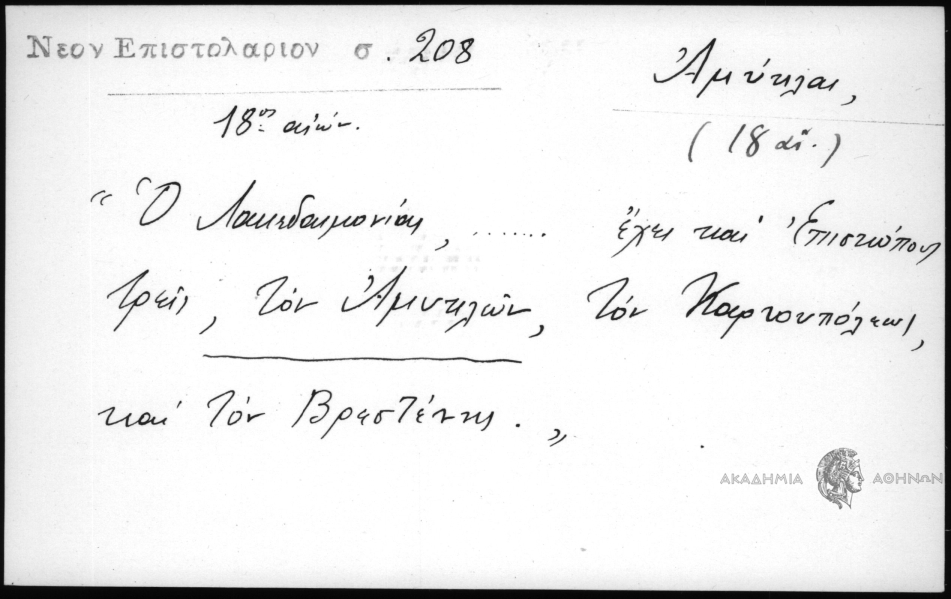 Νεον Επιστολαριον σ. 208
Ἀμύκλαι,
18ος αἰών.
(18 αἰ.)
“ Ὁ Λακεδαιμονίας, ....... ἔχει καὶ Ἐπισκόπους
τρεῖς, τὸν Ἀμυκλῶν, τὸν Καρτουπόλεως,
καὶ τὸν Βρεστένης. „
ΑΚΑΔΗΜΙΑ ΑΘΗΝΩΝ